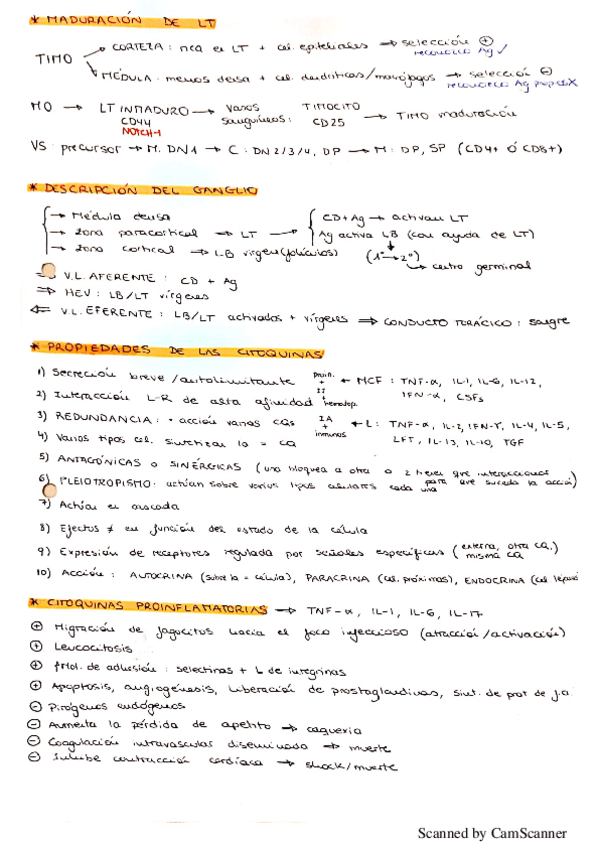 * MADURACIÓN DE LT
TIMO
CORTEZA: rica en LT + cel. epiteliales → selección ⊕
reconocen Ag ✓
MÉDULA: menos densa + cel. dendríticas/macrófagos → selección ⊖
reconocen Ag propios X
MO → LT INMADURO → vasos sanguíneos: TIMOCITO → TIMO maduración
CD44 CD25
NOTCH-1
VS: precursor → M: DN1 → C: DN2/3/4, DP → M: DP, SP (CD4+ Ó CD8+)
* DESCRIPCIÓN DEL GANGLIO
→ Médula densa
→ zona paracortical → LT → CD+Ag → activan LT
Ag activa LB (con ayuda de LT)
→ zona cortical → LB vírgen (folículos) (1º → 2º)
centro germinal
V.L. AFERENTE: CD + Ag
⇒ HEV: LB/LT vírgenes
⇐ V.L. EFERENTE: LB/LT activados + vírgenes ⇒ CONDUCTO TORÁCICO: sangre
* PROPIEDADES DE LAS CITOQUINAS
1) Secreción breve/autolimitante
2) Interacción L-R de alta afinidad
3) REDUNDANCIA: = acción varias CQs
4) Varios tipos cel. sintetizan la = CQ
Proin. + II + hematop. ← MCF: TNF-α, IL-1, IL-6, IL-12,
IFN-α, CSFs
IA + inmunos ← L: TNF-α, IL-2, IFN-γ, IL-4, IL-5,
LFT, IL-13, IL-10, TGF
5) ANTAGÓNICAS O SINÉRGICAS (una bloquea a otra o 2 tienen que interaccionar
para que suceda la acción)
6) PLEIOTROPISMO: actúan sobre varios tipos celulares cada una
7) Actúan en cascada
8) Efectos ≠ en función del estado de la célula
9) Expresión de receptores regulada por señales específicas (externa, otra CQ,
misma CQ)
10) Acción: AUTOCRINA (sobre la = célula), PARACRINA (cel. próximas), ENDOCRINA (cel lejana)
* CITOQUINAS PROINFLAMATORIAS → TNF-α, IL-1, IL-6, IL-17
⊕ Migración de fagocitos hacia el foco infeccioso (atracción/activación)
⊕ Leucocitosis
⊕ ↑Mol. de adhesión: selectinas + L de integrinas
⊕ Apoptosis, angiogénesis, liberación de prostaglandinas, sint. de prot de f.a
⊖ Pirógenos endógenos
⊖ Aumenta la pérdida de apetito → caquexia
⊖ Coagulación intravascular diseminada → muerte
⊖ Inhibe contracción cardíaca → shock/muerte
Scanned by CamScanner